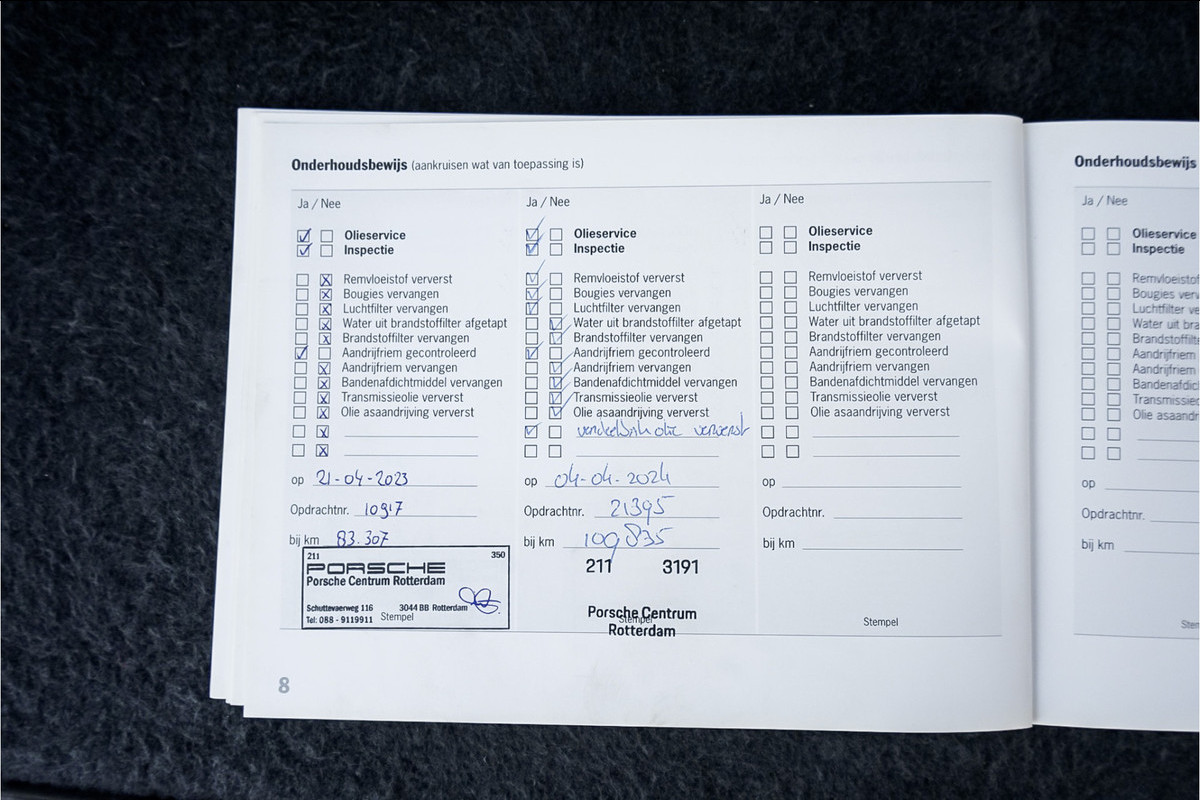 Onderhoudsbewijs (aankruisen wat van toepassing is)
Ja / Nee
Olieservice
Inspectie
Remvloeistof ververst
Bougies vervangen
Luchtfilter vervangen
Water uit brandstoffilter afgetapt
Brandstoffilter vervangen
Aandrijfriem gecontroleerd
Aandrijfriem vervangen
Bandenafdichtmiddel vervangen
Transmissieolie ververst
Olie asaandrijving ververst
op 21-04-2023
Opdrachtnr. 10917
bij km 83.307
211 350
PORSCHE
Porsche Centrum Rotterdam
Schuttevaerweg 116 3044 BB Rotterdam
Tel: 088 - 9119911 Stempel
Ja / Nee
Olieservice
Inspectie
Remvloeistof ververst
Bougies vervangen
Luchtfilter vervangen
Water uit brandstoffilter afgetapt
Brandstoffilter vervangen
Aandrijfriem gecontroleerd
Aandrijfriem vervangen
Bandenafdichtmiddel vervangen
Transmissieolie ververst
Olie asaandrijving ververst
olie ververst
op 04-04-2024
Opdrachtnr. 21395
bij km 109835
211 3191
Porsche Centrum
Stempel
Rotterdam
Ja / Nee
Olieservice
Inspectie
Remvloeistof ververst
Bougies vervangen
Luchtfilter vervangen
Water uit brandstoffilter afgetapt
Brandstoffilter vervangen
Aandrijfriem gecontroleerd
Aandrijfriem vervangen
Bandenafdichtmiddel vervangen
Transmissieolie ververst
Olie asaandrijving ververst
op
Opdrachtnr.
bij km
Stempel
8
Onderhoudsbewijs
Ja / Nee
Olieservice
Inspectie
Remvloeistof
Bougies verv
Luchtfilter ve
Water uit bran
Brandstoffilte
Aandrijfriem
Aandrijfriem
Bandenafdic
Transmissieo
Olie asaandr
op
Opdrachtnr.
bij km
Stem